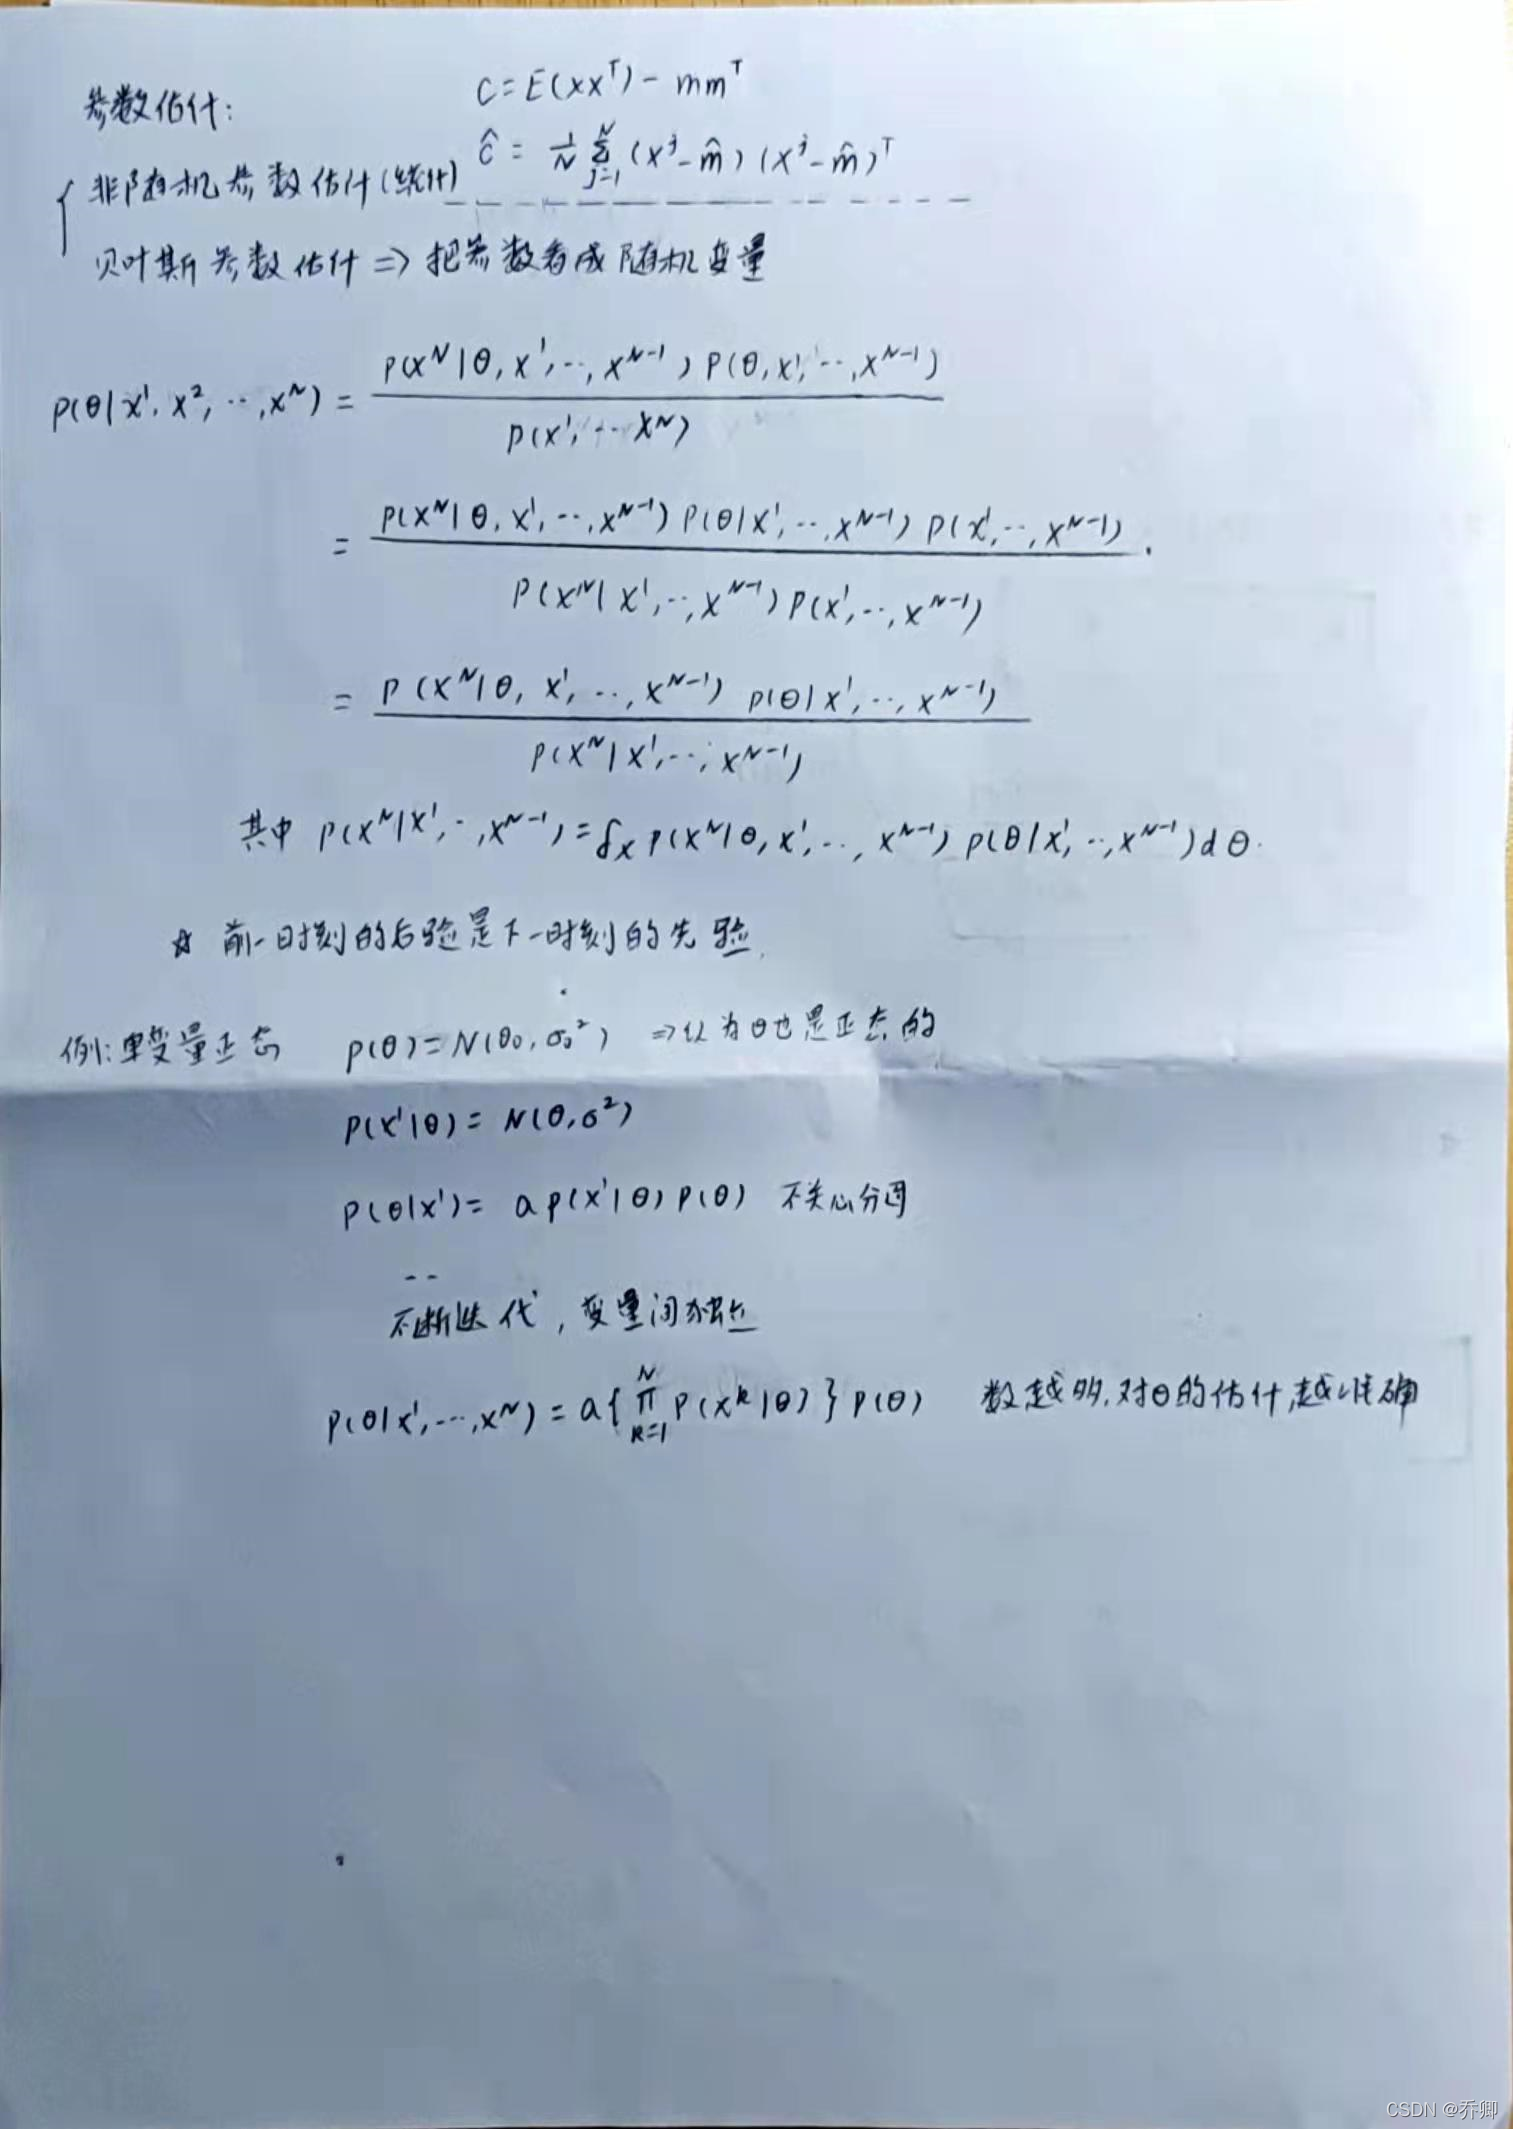 参数估计:
C = E(xxᵀ) - mmᵀ
非随机参数估计(统计)
Ĉ = 1/N Σ_{j=1}^{N} (x^j - m̂)(x^j - m̂)ᵀ
贝叶斯参数估计 => 把参数看成随机变量
P(θ|x¹, x², ‥, x^N) = P(x^N|θ, x¹, ‥, x^{N-1}) P(θ, x¹, ‥, x^{N-1}) / P(x¹, ‥ x^N)
= P(x^N|θ, x¹, ‥, x^{N-1}) P(θ|x¹, ‥, x^{N-1}) P(x¹, ‥, x^{N-1}) / P(x^N|x¹, ‥, x^{N-1}) P(x¹, ‥, x^{N-1}).
= P(x^N|θ, x¹, ‥, x^{N-1}) P(θ|x¹, ‥, x^{N-1}) / P(x^N|x¹, ‥, x^{N-1})
其中 P(x^N|x¹, ‥, x^{N-1}) = ∫_x P(x^N|θ, x¹, ‥, x^{N-1}) P(θ|x¹, ‥, x^{N-1}) dθ.
☆ 前一时刻的后验是下一时刻的先验.
例: 单变量正态 P(θ) = N(θ₀, σ₀²) => 认为θ也是正态的
P(x¹|θ) = N(θ, σ²)
P(θ|x¹) = a P(x¹|θ) P(θ) 不关心分母
‥
不断迭代, 变量间独立
P(θ|x¹, ‥, x^N) = a{∏_{k=1}^{N} P(x^k|θ)} P(θ) 数越多, 对θ的估计越准确
CSDN @乔卿